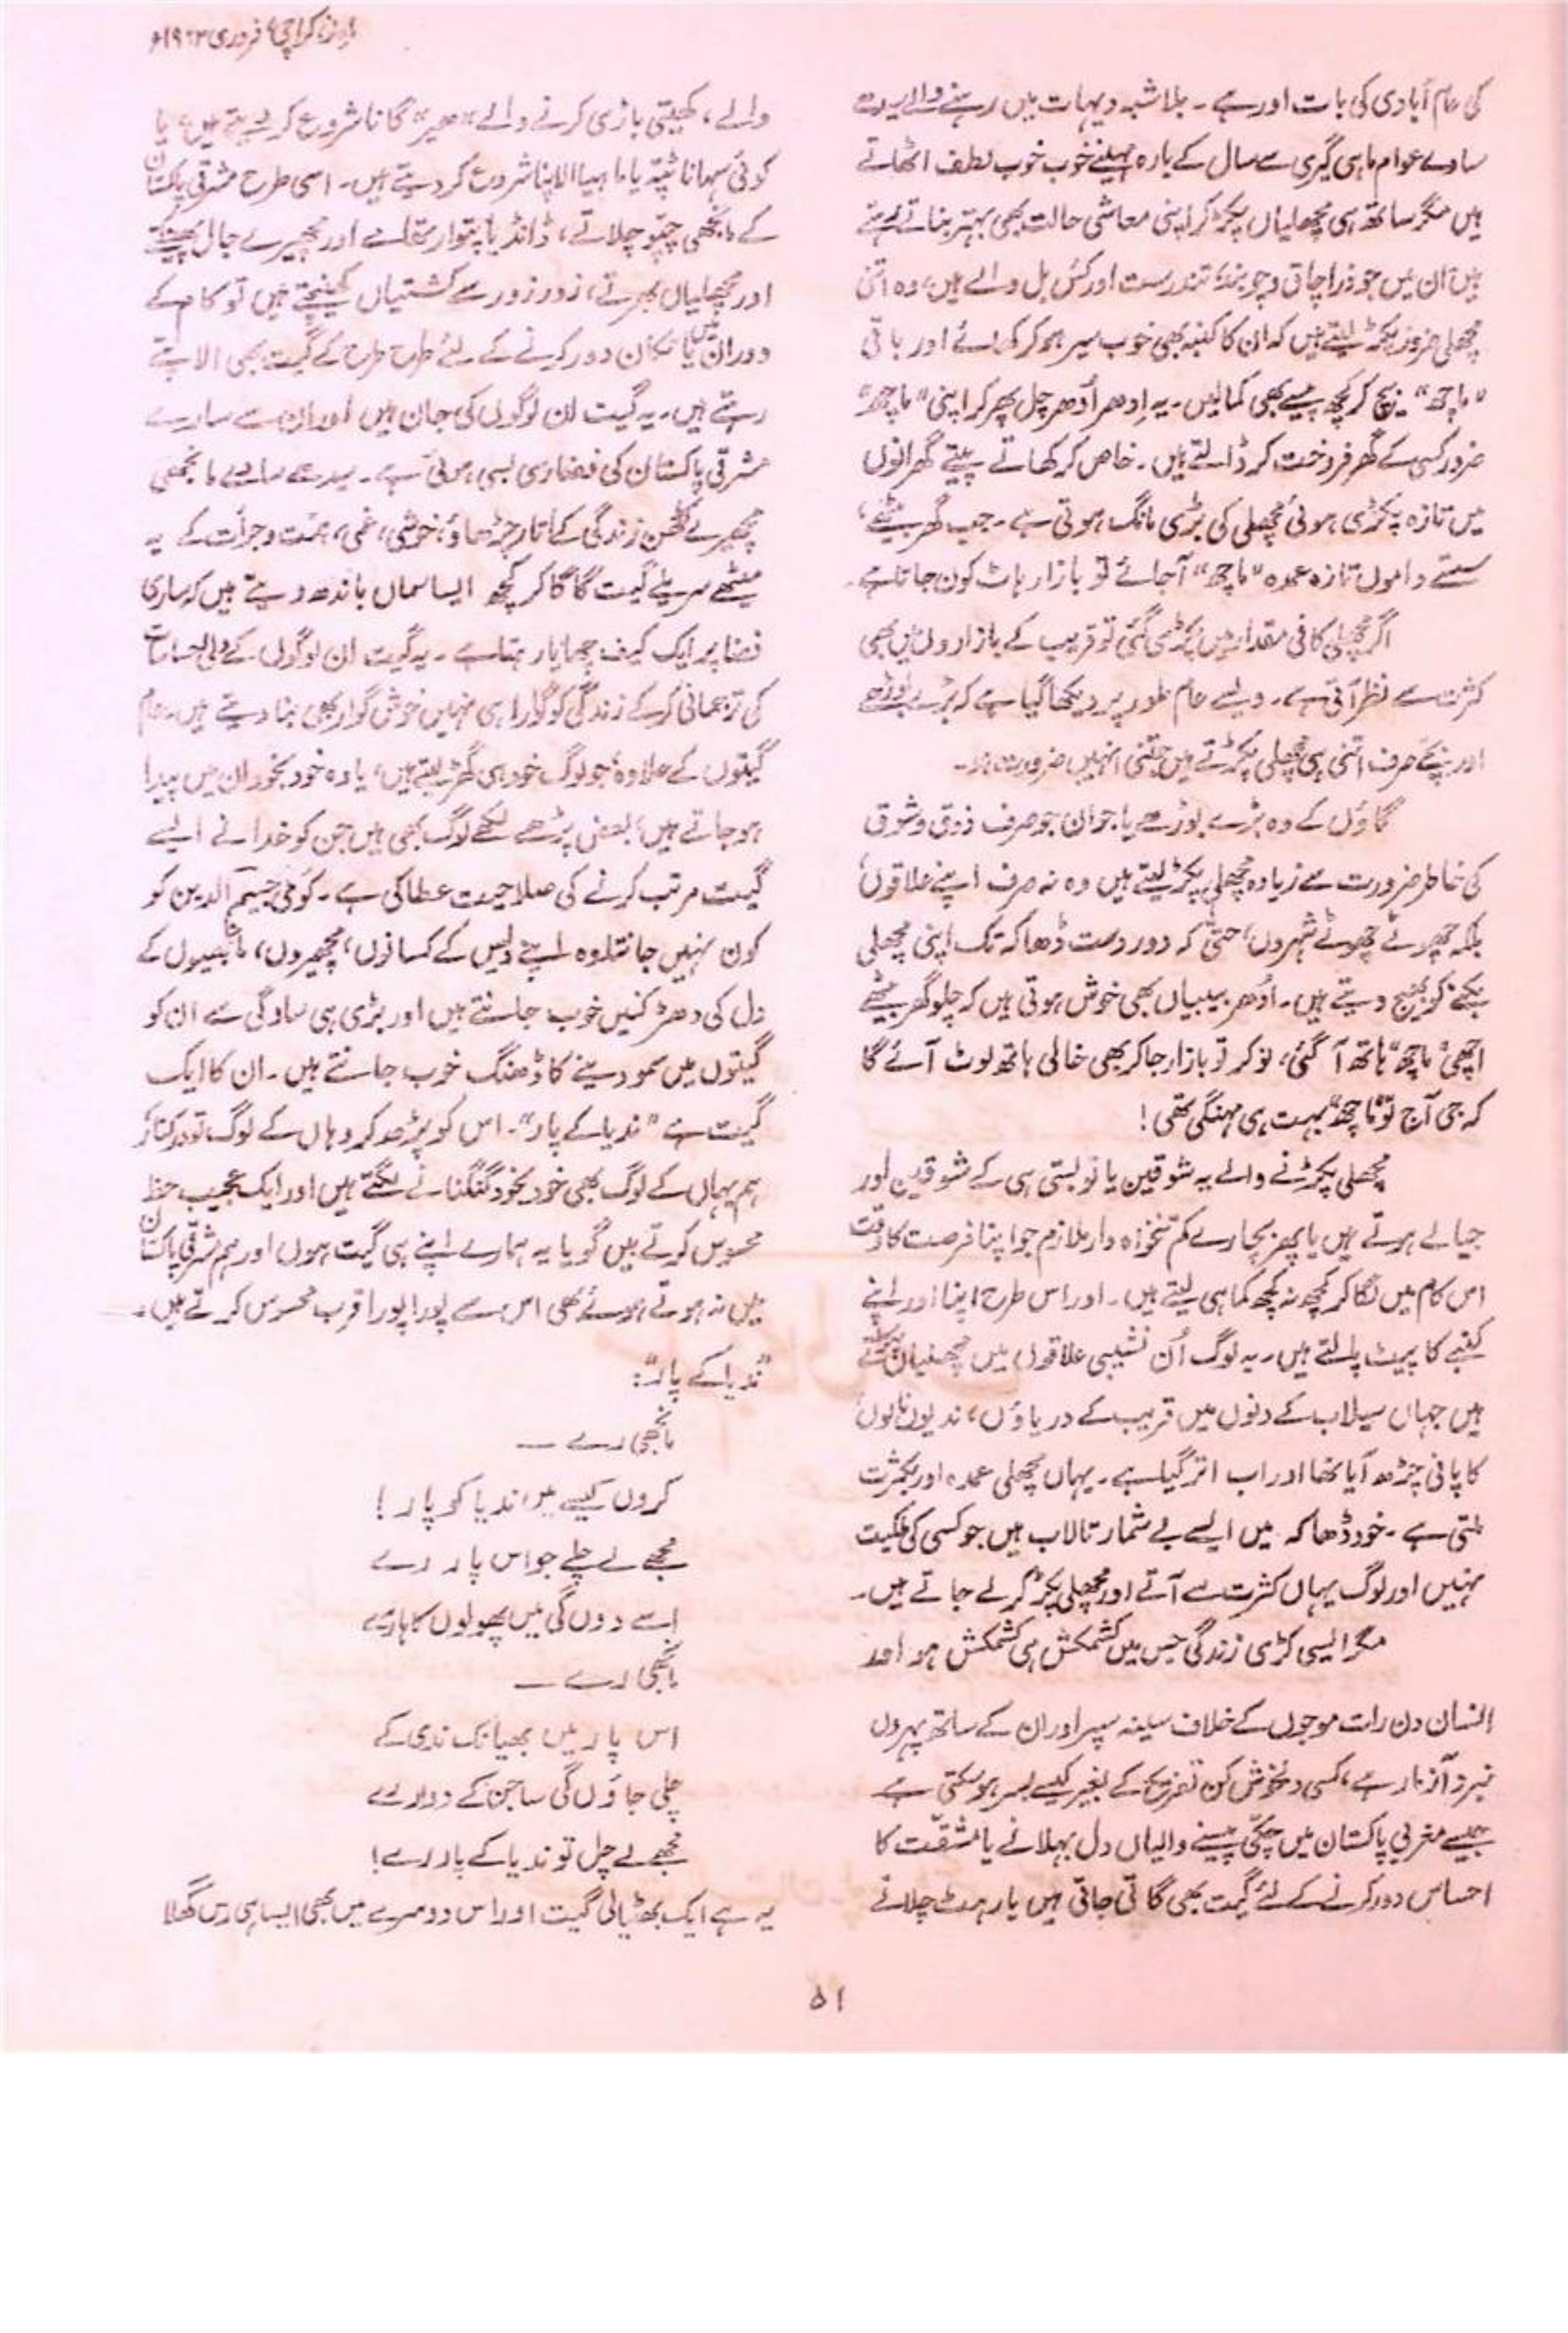 ماہِ نو، کراچی، فروری ۱۹۶۳ء
کی عام آبادی کی بات اور ہے۔ بلاشبہ دیہات میں رہنے والے سیدھے
سادے عوام ماہی گیری سے سال کے بارہ مہینے خوب خوب لطف اٹھاتے
ہیں مگر ساتھ ہی مچھلیاں پکڑ کر اپنی معاشی حالت بھی بہتر بناتے رہتے
ہیں ان میں جو ذرا چاق و چوبند، تندرست اور کس بل والے ہیں، وہ اتنی
مچھلی ضرور پکڑ لیتے ہیں کہ ان کا کنبہ بھی خوب سیر ہو کر کھائے اور باقی
"ماچھ" بیچ کر کچھ پیسے بھی کمالیں۔ یہ اِدھر اُدھر چل پھر کر اپنی "ماچھ"
ضرور کسی کے گھر فروخت کر ڈالتے ہیں۔ خاص کر کھاتے پیتے گھرانوں
میں تازہ پکڑی ہوئی مچھلی کی بڑی مانگ ہوتی ہے۔ جب گھر بیٹھے،
سستے داموں تازہ عمدہ "ماچھ" آجائے تو بازار ہاٹ کون جاتا ہے۔
اگر مچھلی کافی مقدار میں پکڑی گئی تو قریب کے بازاروں میں بھی
کثرت سے نظر آتی ہے۔ ویسے عام طور پر دیکھا گیا ہے کہ بڑے بوڑھے
اور بچے صرف اتنی ہی مچھلی پکڑتے ہیں جتنی انہیں ضرورت ہو۔
گاؤں کے وہ بڑے بوڑھے یا جوان جو صرف ذوق و شوق
کی خاطر ضرورت سے زیادہ مچھلی پکڑ لیتے ہیں وہ نہ صرف اپنے علاقوں،
بلکہ چھوٹے چھوٹے شہروں، حتیٰ کہ دور دست ڈھاکہ تک اپنی مچھلی
بکنے کو بھیج دیتے ہیں۔ اُدھر بیبیاں بھی خوش ہوتی ہیں کہ چلو گھر بیٹھے
اچھی "ماچھ" ہاتھ آ گئی، نوکر تو بازار جا کر بھی خالی ہاتھ لوٹ آئے گا
کہ جی آج تو "ماچھ" بہت ہی مہنگی تھی!
مچھلی پکڑنے والے یہ شوقین یا تو بستی ہی کے شوقین اور
جیالے ہوتے ہیں یا پھر بچارے کم تنخواہ دار ملازم جو اپنا فرصت کا وقت
اس کام میں لگا کر کچھ نہ کچھ کما ہی لیتے ہیں۔ اور اس طرح اپنا اور اپنے
کنبے کا پیٹ پالتے ہیں۔ یہ لوگ اُن نشیبی علاقوں میں مچھلیاں پکڑتے
ہیں جہاں سیلاب کے دنوں میں قریب کے دریاؤں، ندیوں نالوں
کا پانی چڑھ آیا تھا اور اب اتر گیا ہے۔ یہاں مچھلی عمدہ اور بکثرت
ملتی ہے۔ خود ڈھاکہ میں ایسے بے شمار تالاب ہیں جو کسی کی ملکیت
نہیں اور لوگ یہاں کثرت سے آتے اور مچھلی پکڑ کر لے جاتے ہیں۔
مگر ایسی کڑی زندگی جس میں کشمکش ہی کشمکش ہو اور
انسان دن رات موجوں کے خلاف سینہ سپر اور ان کے ساتھ پہروں
نبرد آزما رہے، کسی دلخوش کن تفریح کے بغیر کیسے بسر ہو سکتی ہے
جیسے مغربی پاکستان میں چکی پیسنے والیاں دل بہلانے یا مشقت کا
احساس دور کرنے کے لئے گیت بھی گاتی جاتی ہیں یا رہٹ چلانے
والے، کھیتی باڑی کرنے والے "ہیر" گانا شروع کر دیتے ہیں، یا
کوئی سہانا ٹپہ یا ماہیا الاپنا شروع کر دیتے ہیں۔ اسی طرح مشرقی پاکستان
کے مانجھی چپّو چلاتے، ڈانڈ یا پتوار سنبھالے اور مچھیرے جال پھینکتے
اور مچھلیاں بھرتے، زور زور سے کشتیاں کھینچتے ہیں تو کام کے
دوران میں یا تکان دور کرنے کے لئے طرح طرح کے گیت بھی الاپتے
رہتے ہیں۔ یہ گیت ان لوگوں کی جان ہیں اور ان سے سارے
مشرقی پاکستان کی فضا رسی بسی ہوئی ہے۔ سیدھے سادے مانجھی
مچھیرے کٹھن زندگی کے اتار چڑھاؤ، خوشی، غمی، ہمت و جرأت کے یہ
میٹھے سریلے گیت گا گا کر کچھ ایسا سماں باندھ دیتے ہیں کہ ساری
فضا پر ایک کیف چھایا رہتا ہے۔ یہ گیت ان لوگوں کے دلی احساسات
کی ترجمانی کر کے زندگی کو گوارا ہی نہیں خوش گوار بھی بنا دیتے ہیں۔ عام
گیتوں کے علاوہ، جو لوگ خود ہی گھڑ لیتے ہیں، یا وہ خود بخود ان میں پیدا
ہو جاتے ہیں، بعض پڑھے لکھے لوگ بھی ہیں جن کو خدا نے ایسے
گیت مرتب کرنے کی صلاحیت عطا کی ہے۔ کوی جسیم الدین کو
کون نہیں جانتا وہ اپنے دیس کے کسانوں، مچھیروں، مانجھیوں کے
دل کی دھڑکنیں خوب جانتے ہیں اور بڑی ہی سادگی سے ان کو
گیتوں میں سمو دینے کا ڈھنگ خوب جانتے ہیں۔ ان کا ایک
گیت ہے "ندیا کے پار"۔ اس کو پڑھ کر وہاں کے لوگ تو درکنار
ہم یہاں کے لوگ بھی خود بخود گنگنانے لگتے ہیں اور ایک عجیب حظ
محسوس کرتے ہیں گویا یہ ہمارے اپنے ہی گیت ہوں اور ہم مشرقی پاکستان
میں نہ ہوتے ہوئے بھی اس سے پورا پورا قرب محسوس کرتے ہیں۔
"ندیا کے پار":
مانجھی رے —
کروں کیسے میں ندیا کو پار!
مجھے لے چلے جو اس پار رے
اسے دوں گی میں پھولوں کا ہار رے
مانجھی رے —
اس پار میں بھیانک ندی کے
چلی جاؤں گی ساجن کے دوارے
مجھے لے چل تو ندیا کے پار رے!
یہ ہے ایک بھٹیالی گیت اور اس دوسرے میں بھی ایسا ہی رس گھلا
۵۱